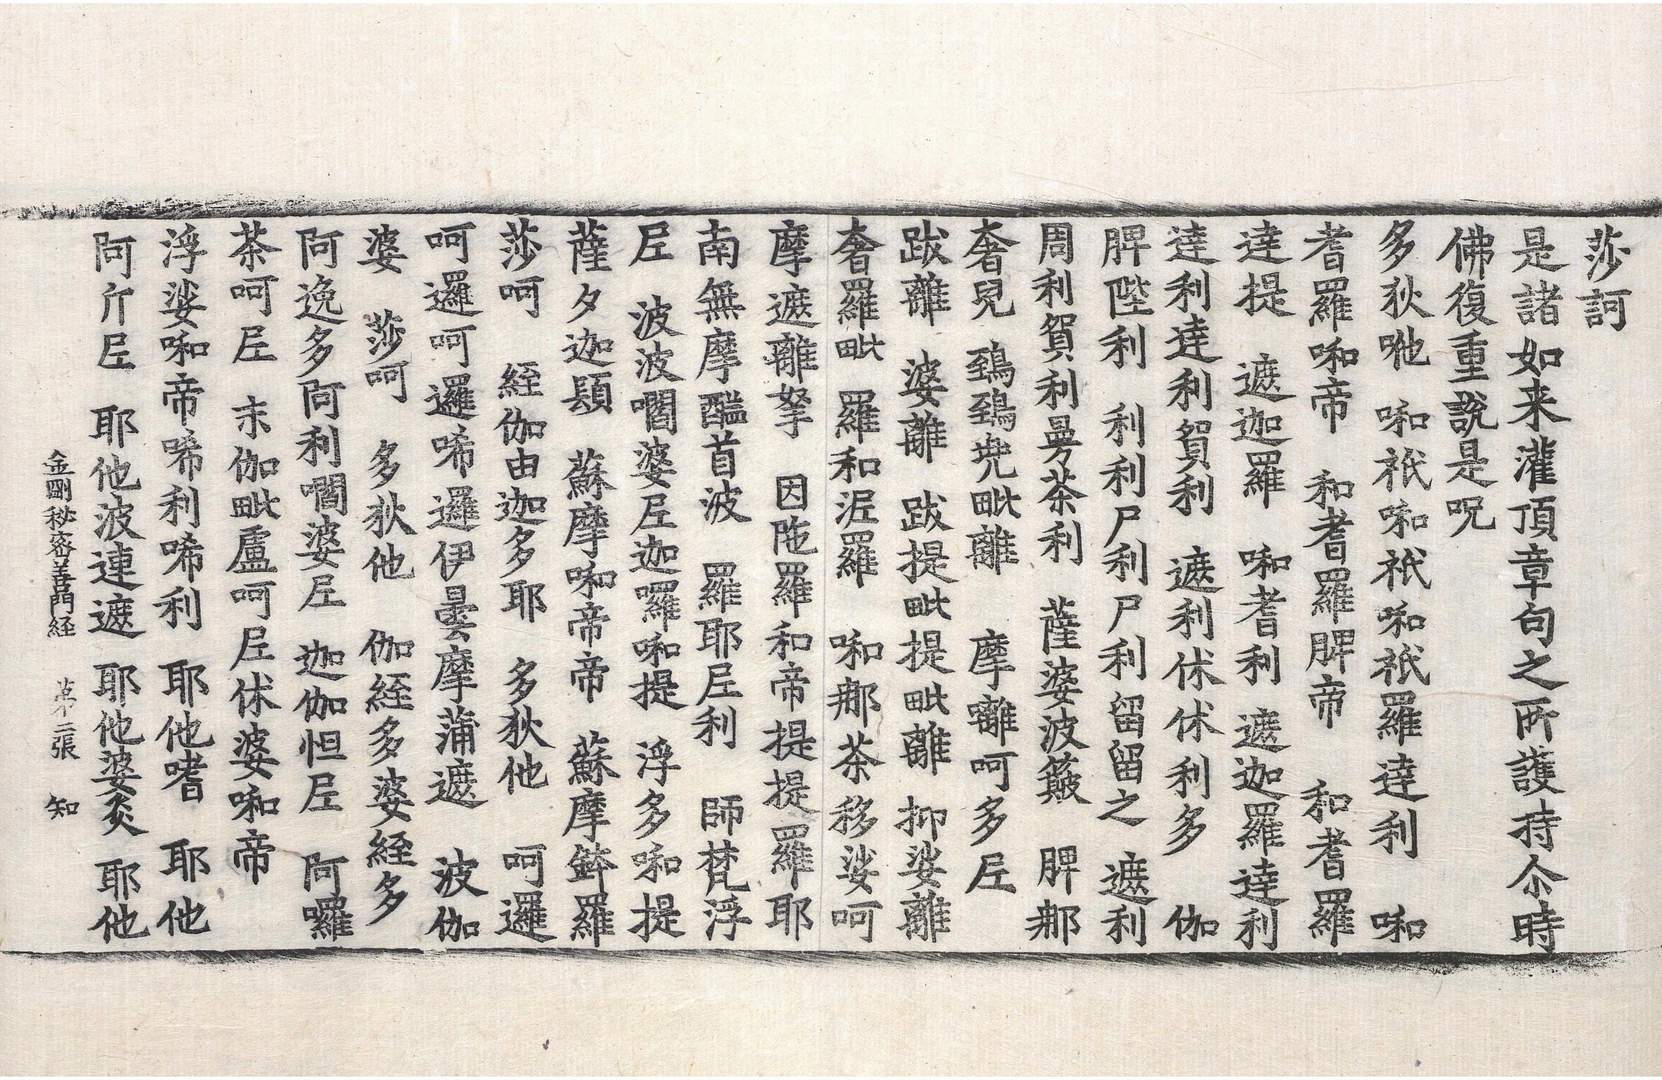 莎訶
是諸如来灌頂章句之所護持尒時
佛復重說是呪
多狄呭　啝祇啝祇啝祇羅達利　啝
耆羅啝帝　和耆羅脾帝　和耆羅
達提　遮迦羅　啝耆利　遮迦羅達利
達利達利賀利　遮利伏伏利多　伽
脾陛利　利利尸利尸利留留之　遮利
周利賀利曼茶利　薩婆波簸　脾那
奢兒　鵄鵄兜毗離　摩囄呵多𡰱
跋離　婆離　跋提毗提毗離　抑娑離
奢羅毗　羅和泥羅　啝那茶移娑呵
摩遮離拏　因陁羅和帝提提羅耶
南無摩醯首波　羅耶𡰱利　師梵浮
𡰱　波波㘕婆𡰱迦囉啝提　浮多啝提
薩夕迦題　蘇摩啝帝帝　蘇摩鉢羅
莎呵　絰伽由迦多耶　多狄他　呵邏
呵邏呵邏唏邏伊曇摩蒲遮　波伽
婆　莎呵　多狄他　伽絰多婆絰多
阿逸多阿利㘕婆𡰱　迦伽怛𡰱　阿囉
茶呵𡰱　末伽毗盧呵𡰱伏婆啝帝
浮娑啝帝唏利唏利　耶他嗜　耶他
阿斤𡰱　耶他波連遮　耶他婆炎　耶他
金剛秘密善門経　苐二張　知